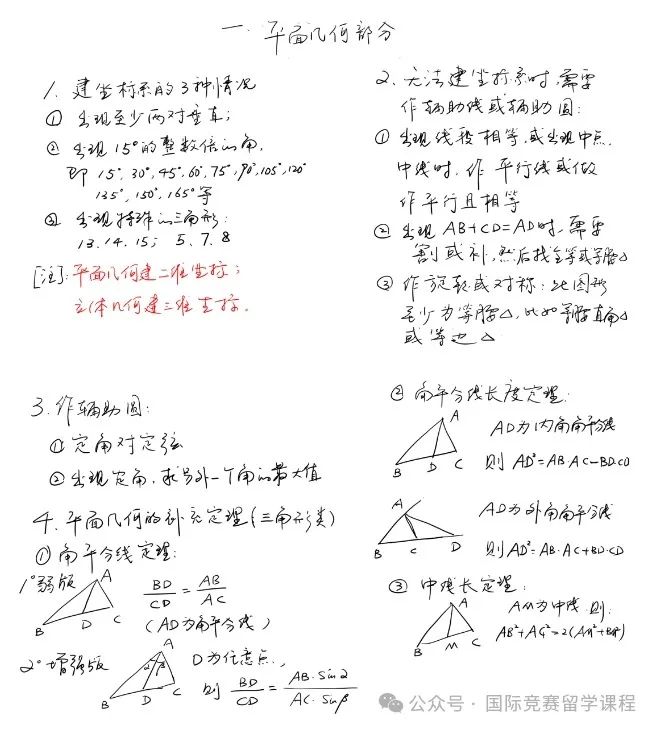 一. 平面几何部分
1. 建坐标系的3种情况
① 出现至少两对垂直;
② 出现15°的整数倍的角,
即 15°, 30°, 45°, 60°, 75°, 90°, 105°, 120°
135°, 150°, 165° 等
③ 出现特殊的三角形:
13.14.15; 5.7.8
[注]: 平面几何建二维坐标;
立体几何建三维坐标.
2. 无法建坐标系时, 需要
作辅助线或辅助圆:
① 出现线段相等, 或出现中点,
中线时, 作平行线或做
作平行且相等
② 出现 AB+CD=AD时, 需要
割或补, 然后找全等或等腰△
③ 作旋转或对称: 此图形
至少为等腰△, 比如等腰直角△
或等边△
3. 作辅助圆:
① 定角对定弦
② 出现定角, 求另外一个角的最大值
4. 平面几何的补充定理(三角形类)
① 角平分线定理:
1° 弱版
A
B D C
BD/CD = AB/AC
(AD为角平分线)
2° 增强版
A
α β
B D C
D为任意点,
则 BD/CD = AB·sinα/AC·sinβ
② 角平分线长度定理:
A
B D C
AD为内角角平分线
则 AD²=AB·AC-BD·CD
A
B C D
AD为外角角平分线
则AD²=-AB·AC+BD·CD
③ 中线长定理:
A
B M C
AM为中线, 则:
AB²+AC²=2(AM²+BM²)
公众号 · 国际竞赛留学课程